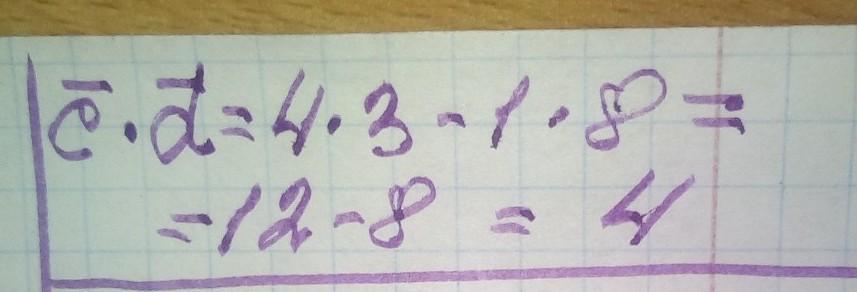 c̄ · d̄ = 4 · 3 - 1 · 8 =
= 12 - 8 = 4